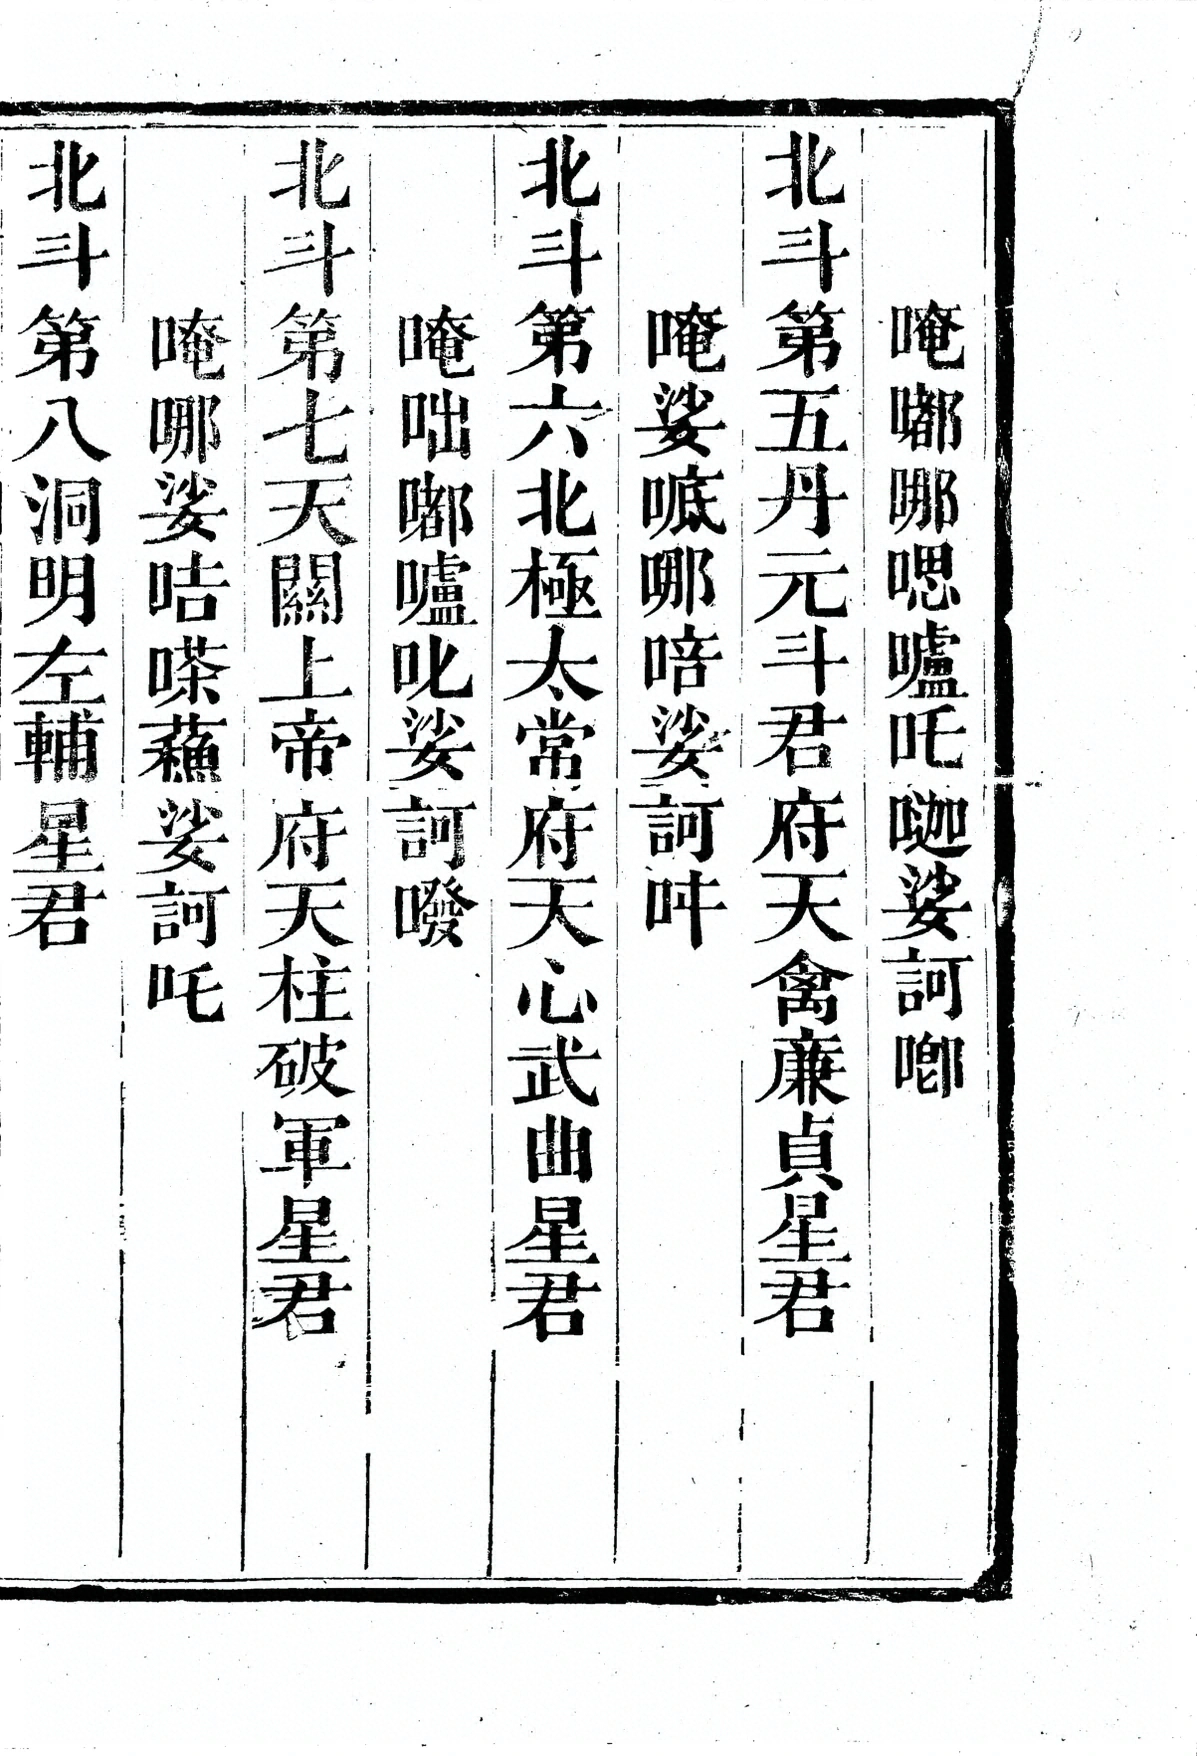 唵嘟哪𠹤嚧吒𠼤娑訶唧
北斗第五丹元斗君府天禽廉貞星君
唵娑㖳哪唔娑訶吽
北斗第六北極太常府天心武曲星君
唵咄嘟嚧叱娑訶㗶
北斗第七天關上帝府天柱破軍星君
唵哪娑咭嗏蘓娑訶吒
北斗第八洞明左輔星君